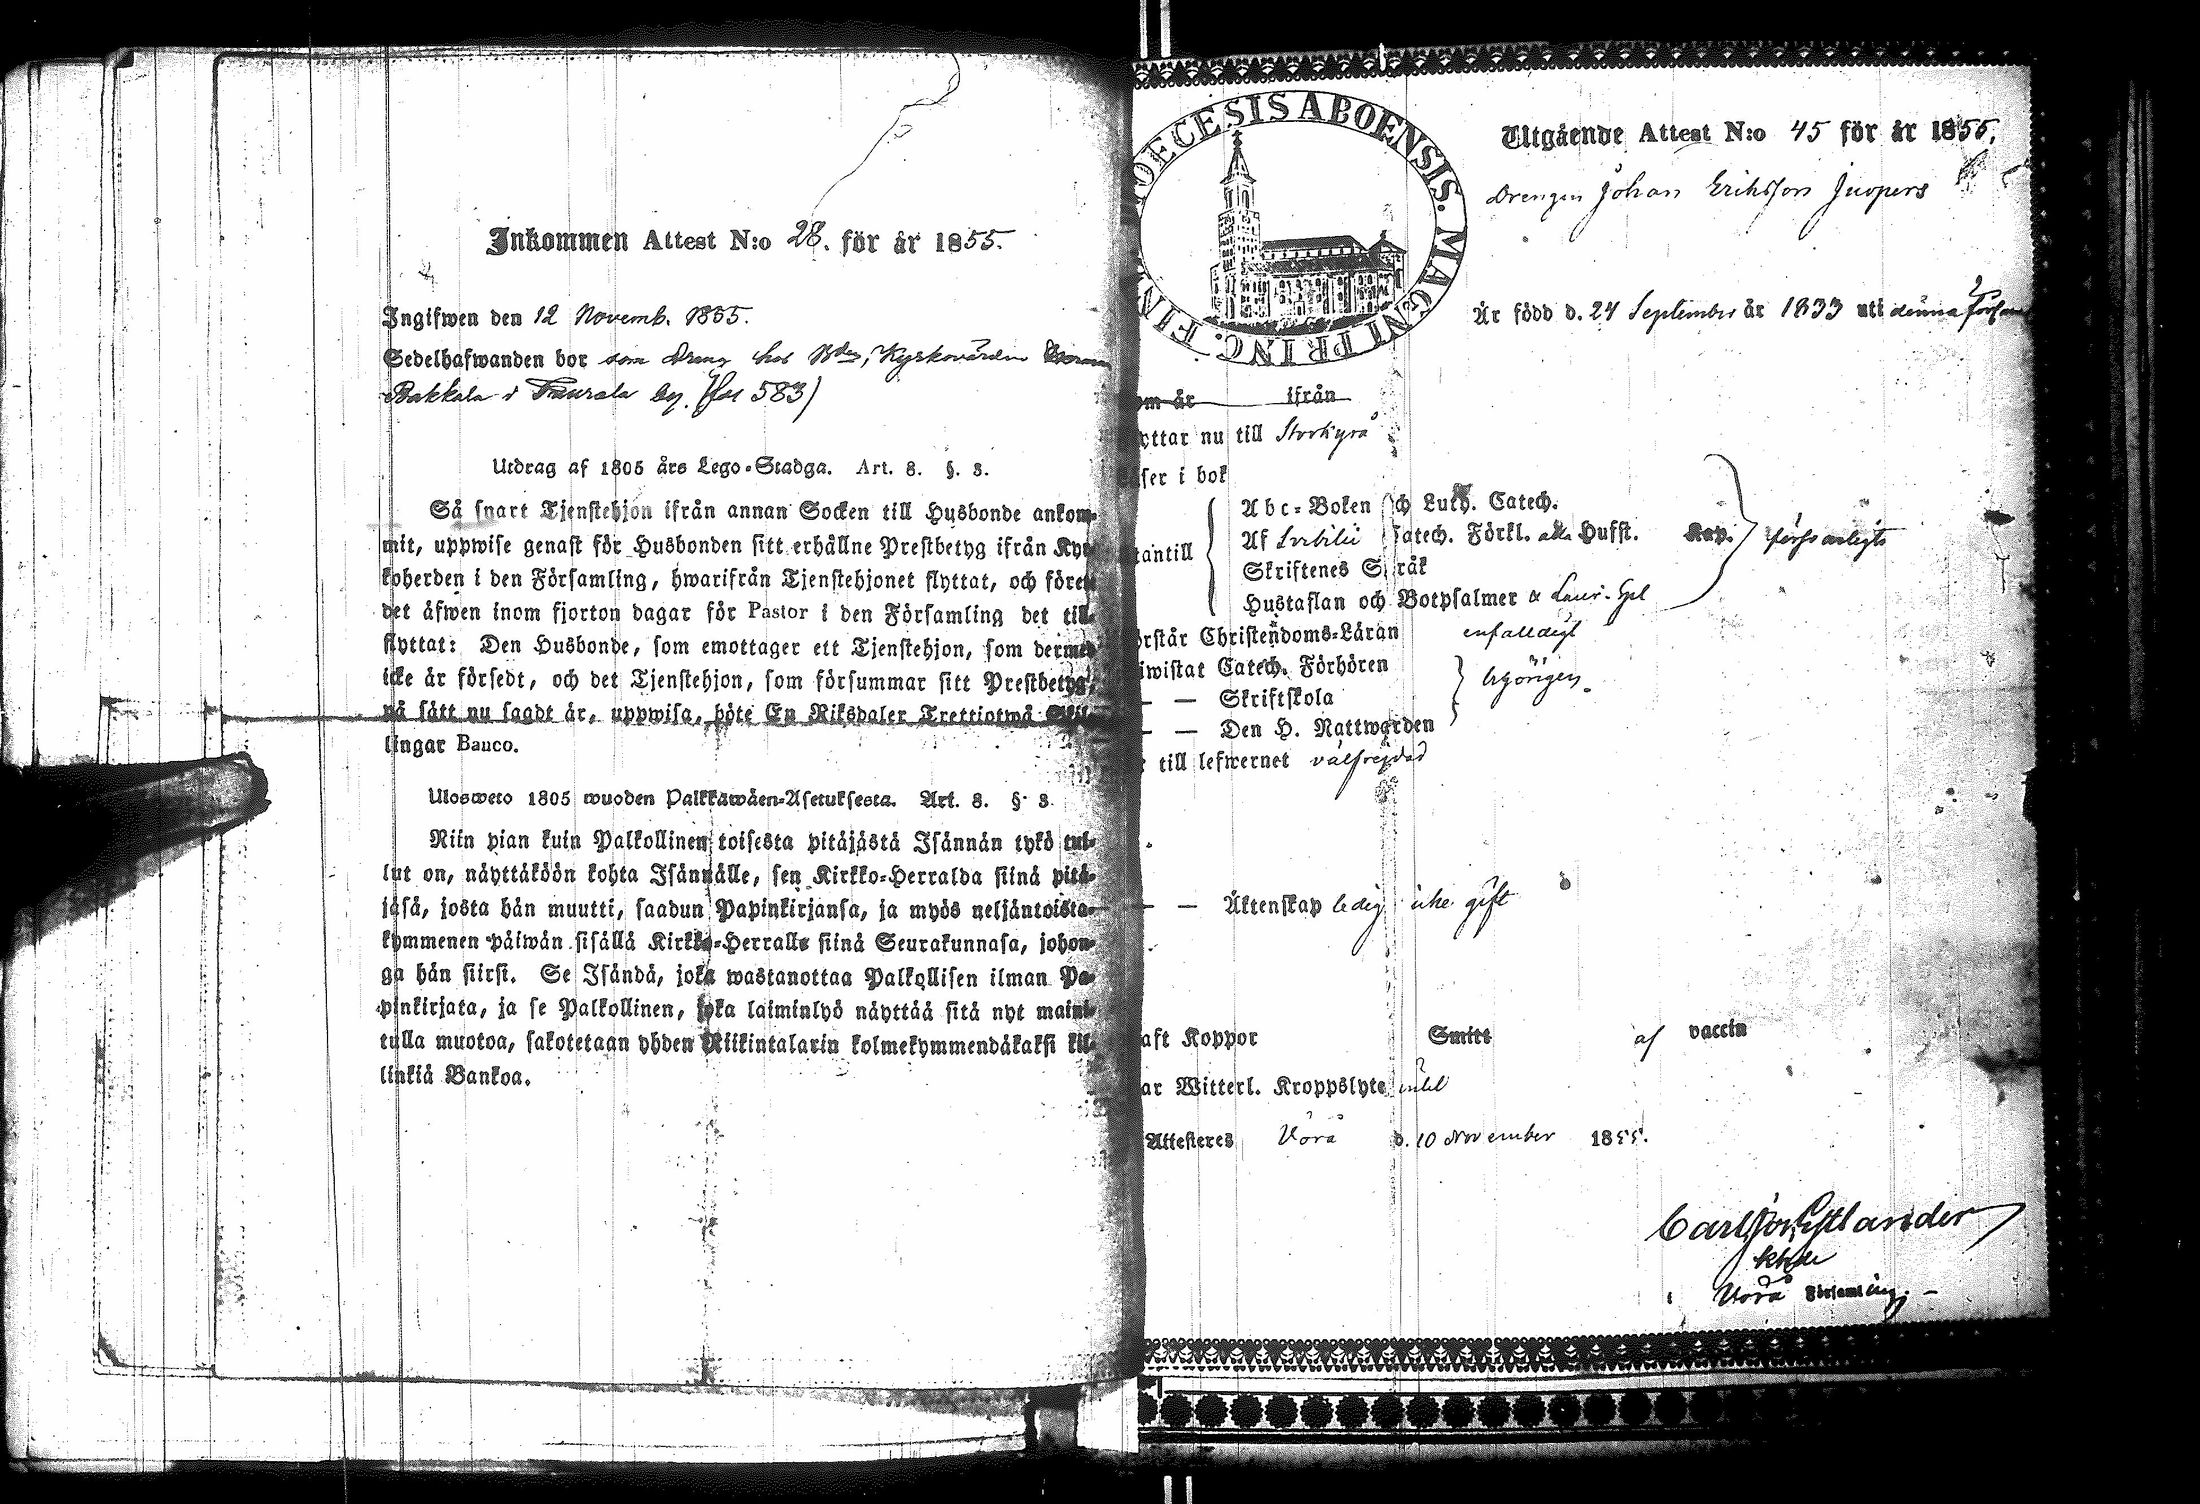 Inkommen Attest N:o 28. för år 1855.
Ingifwen den 12 Novemb. 1855.
Sedelhafwanden bor som Dreng hos Bden, Kyrkovärden
Bakkala i Taurala by. (fol 583)
Utdrag af 1805 års Lego-Stadga. Art. 8. §. 3.
Så snart Tjenstehjon ifrån annan Socken till Husbonde ankom-
mit, uppwise genast för Husbonden sitt erhållne Prestbetyg ifrån Kyr-
koherden i den Församling, hwarifrån Tjenstehjonet flyttat, och förete
det äfwen inom fjorton dagar för Pastor i den Församling det till-
flyttat: Den Husbonde, som emottager ett Tjenstehjon, som dermed
icke är försedt, och det Tjenstehjon, som försummar sitt Prestbetyg,
på sätt nu sagdt är, uppwisa, böte En Riksdaler Trettiotwå Skil-
lingar Banco.
Ulosweto 1805 wuoden Palkkawäen-Asetuksesta. Art. 8. § 3.
Niin pian kuin Palkollinen toisesta pitäjästä Isännän tykö tul-
lut on, näyttäköön kohta Isännälle, sen Kirkko-Herralda siinä pitä-
jäsä, josta hän muutti, saadun Papinkirjansa, ja myös neljäntoista-
kymmenen päiwän sisällä Kirkko-Herralle siinä Seurakunnasa, johon-
ga hän siirsi. Se Isändä, joka wastanottaa Palkollisen ilman Pa-
pinkirjata, ja se Palkollinen, joka laiminlyö näyttää sitä nyt maini-
tulla muotoa, sakotetaan yhden Riikintalarin kolmekymmendäkaksi kil-
linkiä Bankoa.
DIOECESIS ABOENSIS. MAGNI PRINC. FIN
Utgående Attest N:o 45 för år 1855.
Drengen Johan Eriksson Juopers
Är född d. 24 September år 1833 uti denna Försam
om är ifrån
yttar nu till Storkyrå
äser i bok
tantill
Abc-Boken och Luth. Catech.
Af Svebilii Catech. Förkl. alla Hufst. Kap. försvarligt
Skriftenes Språk
Hustaflan och Botpsalmer &
örstår Christendoms-Läran enfaldigt
iwistat Catech. Förhören
— — Skriftskola behörigen.
— — Den H. Nattwarden
till lefwernet välfrejdad
— — Äktenskap ledig icke gift
aft Koppor Smitt af vaccin
ar Witterl. Kroppslyte intet
Attesteres Vörå d. 10 November 1855.
Carl Estlander
i Vörå Församling.